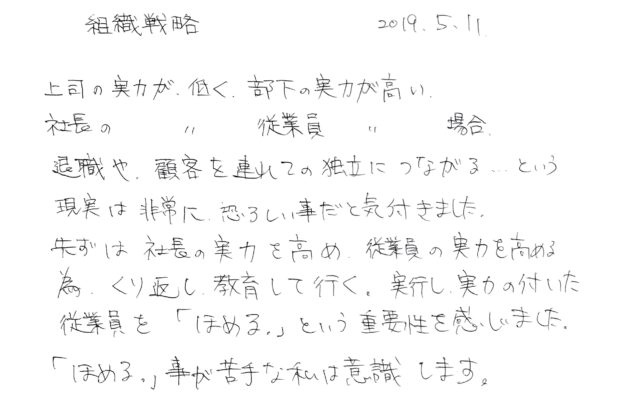 組織戦略 2019.5.11
上司の実力が、低く、部下の実力が高い、
社長の 〃 従業員 〃 場合、
退職や、顧客を連れての独立につながる…という
現実は非常に、恐ろしい事だと気付きました。
先ずは社長の実力を高め、従業員の実力を高める
為、くり返し、教育して行く。実行し、実力の付いた
従業員を「ほめる。」という重要性を感じました。
「ほめる。」事が苦手な私は意識します。